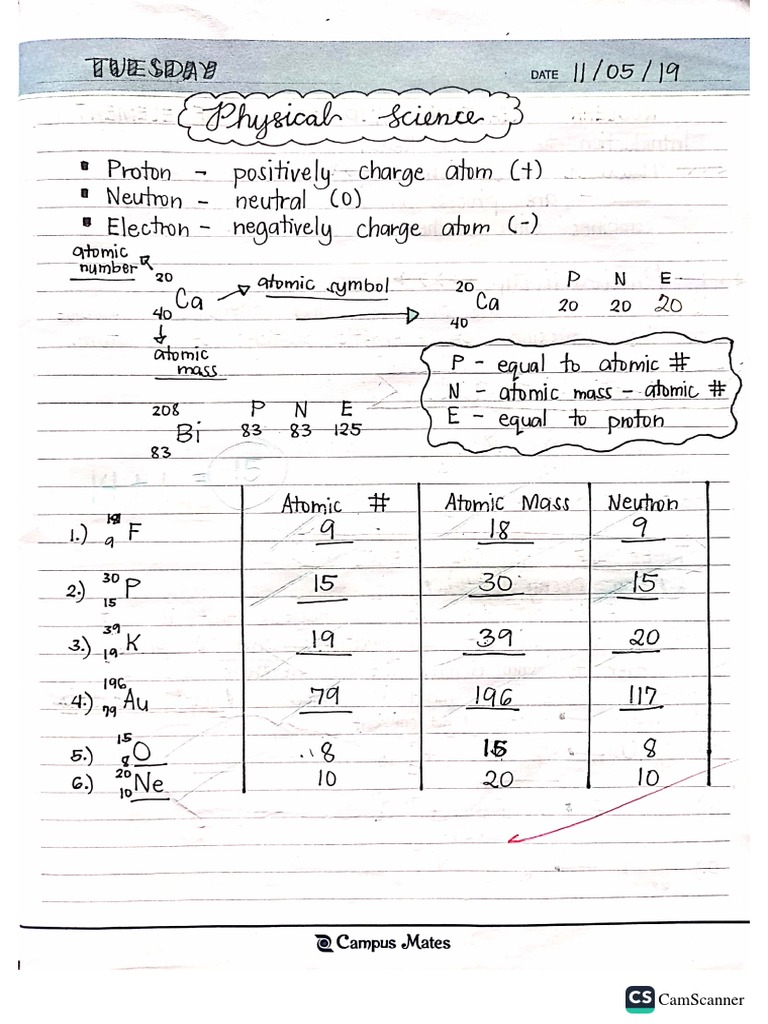 TUESDAY DATE 11/05/19
Physical Science
▪ Proton - positively charge atom (+)
▪ Neutron - neutral (0)
▪ Electron - negatively charge atom (-)
atomic
number
20
Ca
40
atomic symbol
atomic
mass
20
Ca
40
P N E
20 20 20
P - equal to atomic #
N - atomic mass - atomic #
E - equal to proton
208
Bi
83
P N E
83 83 125
Atomic # Atomic Mass Neutron
1.) 18 9 F 9 18 9
2.) 30 15 P 15 30 15
3.) 39 19 K 19 39 20
4.) 196 79 Au 79 196 117
5.) 15 8 O 8 15 8
6.) 20 10 Ne 10 20 10
Campus Mates
CS CamScanner